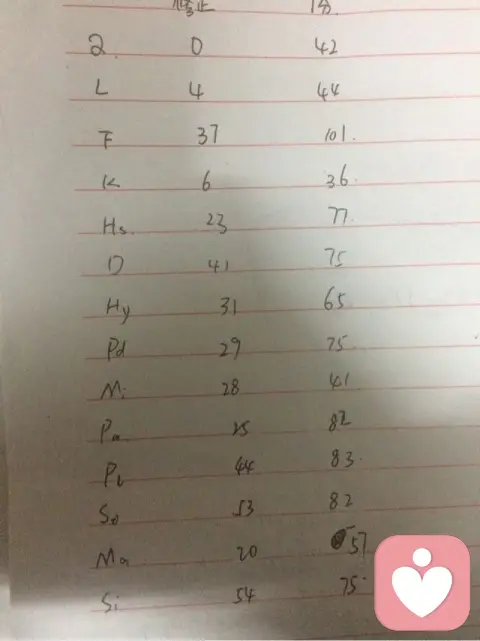 修正 T分
Q 0 42
L 4 44
F 37 101.
K 6 36.
Hs. 23 77
D 41 75
Hy 31 65
Pd 29 75
Mi 28 41
Pa 25 82
Pt 44 83.
Sc 53 82
Ma 20 57
Si 54 75